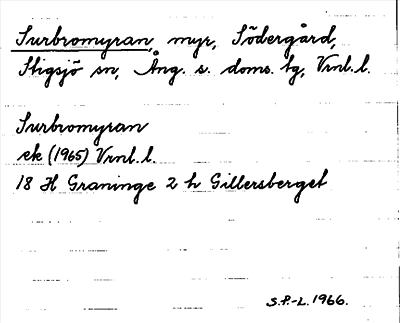 Surbromyran, myr, Södergård,
Stigsjö sn, Ång. s. doms. tg, Vrnl. l.
Surbromyran
ek (1965) Vrnl. l.
18 H Graninge 2 h Gillersberget
S.P.-L. 1966.